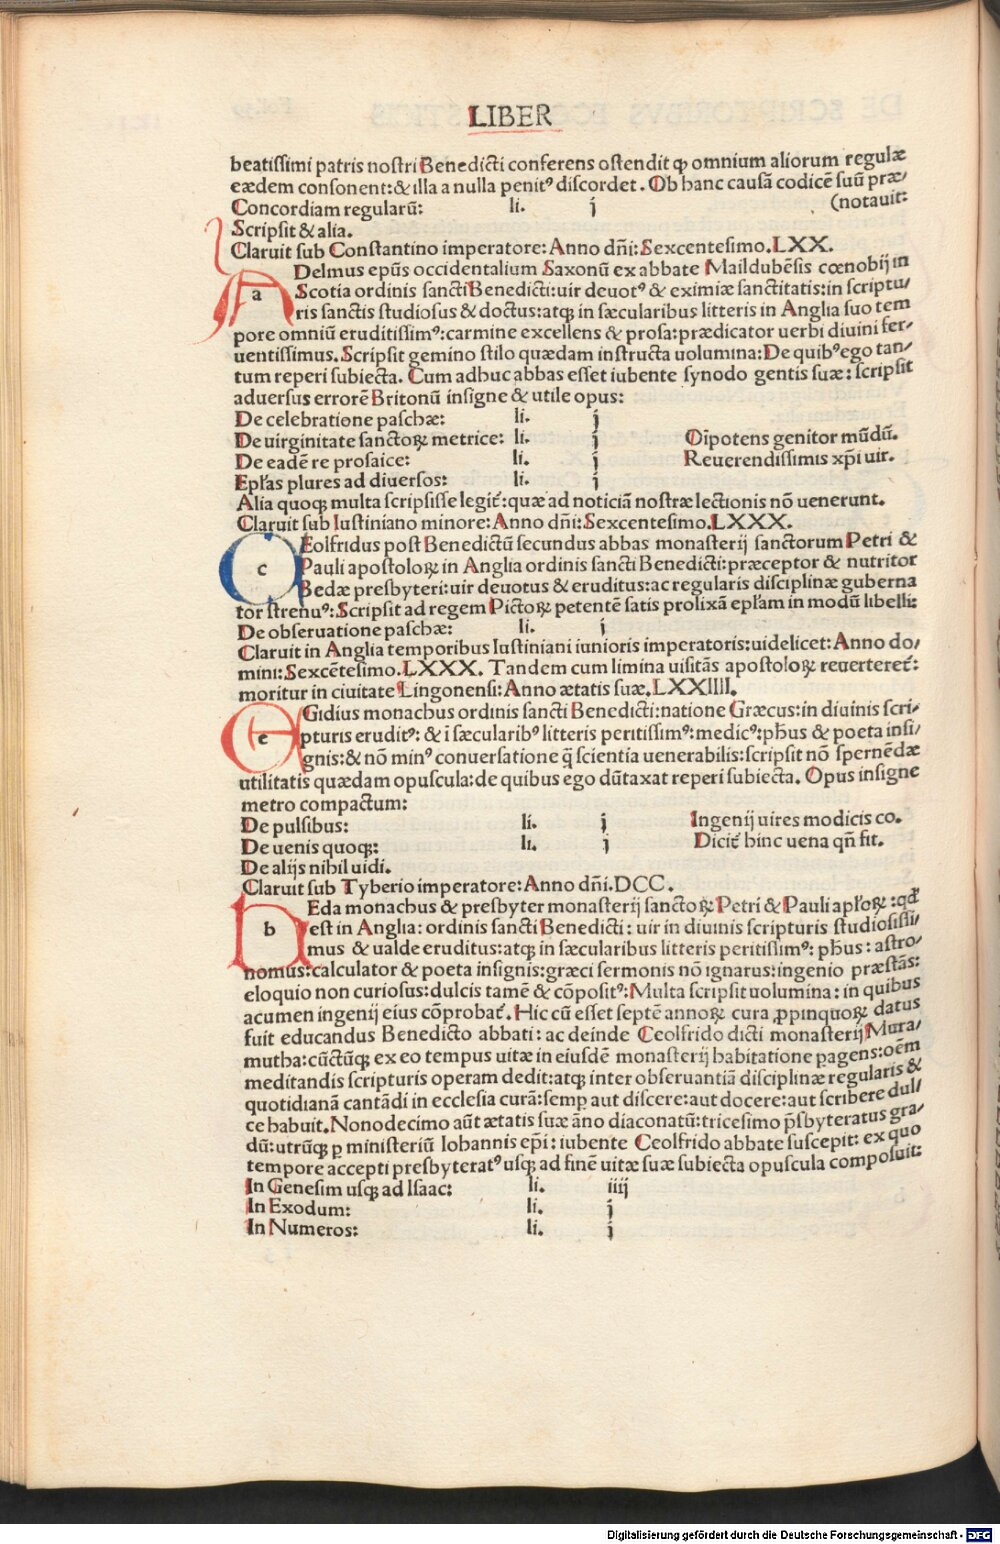 LIBER
beatissimi patris nostri Benedicti conferens ostendit ꝙ omnium aliorum regulæ
eædem consonent:& illa a nulla penitꝰ discordet. Ob hanc causã codicẽ suũ præ/
Concordiam regularũ: li. j (notauit:
Scripsit & alia.
Claruit sub Constantino imperatore: Anno dñi: Sexcentesimo. LXX.
aDelmus ep̃us occidentalium Saxonũ ex abbate Maildubẽsis cœnobij in
Scotia ordinis sancti Benedicti: uir deuotꝰ & eximiæ sanctitatis: in scriptu/
ris sanctis studiosus & doctus: atqꝫ in sæcularibus litteris in Anglia suo tem
pore omniũ eruditissimꝰ: carmine excellens & prosa: prædicator uerbi diuini fer/
uentissimus. Scripsit gemino stilo quædam instructa uolumina: De quibꝰ ego tan/
tum reperi subiecta. Cum adhuc abbas esset iubente synodo gentis suæ: scripsit
aduersus errorẽ Britonũ insigne & utile opus:
De celebratione paschæ: li. j
De uirginitate sanctoꝝ metrice: li. j Oĩpotens genitor mũdũ.
De eadẽ re prosaice: li. j Reuerendissimis xp̃i uir.
Ep̃las plures ad diuersos: li. j
Alia quoqꝫ multa scripsisse legit̃: quæ ad noticiã nostræ lectionis nõ uenerunt.
Claruit sub Iustiniano minore: Anno dñi: Sexcentesimo. LXXX.
cEolfridus post Benedictũ secundus abbas monasterij sanctorum Petri &
Pauli apostoloꝝ in Anglia ordinis sancti Benedicti: præceptor & nutritor
Bedæ presbyteri: uir deuotus & eruditus: ac regularis disciplinæ guberna
tor strenuꝰ: Scripsit ad regem Pictoꝝ petentẽ satis prolixã ep̃lam in modũ libelli:
De obseruatione paschæ: li. j
Claruit in Anglia temporibus Iustiniani iunioris imperatoris: uidelicet: Anno do/
mini: Sexcẽtesimo. LXXX. Tandem cum limina uisitãs apostoloꝝ reuerteret̃:
moritur in ciuitate Lingonensi: Anno ætatis suæ. LXXIIII.
eGidius monachus ordinis sancti Benedicti: natione Græcus: in diuinis scri/
pturis eruditꝰ: & i sæcularibꝰ litteris peritissimꝰ: medicꝰ: ph̃us & poeta insi/
gnis: & nõ minꝰ conuersatione q̃ scientia uenerabilis: scripsit nõ spernẽdæ
utilitatis quædam opuscula: de quibus ego dũtaxat reperi subiecta. Opus insigne
metro compactum:
De pulsibus: li. j Ingenij uires modicis co.
De uenis quoqꝫ: li. j Dicit̃ hinc uena qñ fit.
De alijs nihil uidi.
Claruit sub Tyberio imperatore: Anno dñi. DCC.
bEda monachus & presbyter monasterij sanctoꝝ Petri & Pauli ap̃loꝝ: qđ
est in Anglia: ordinis sancti Benedicti: uir in diuinis scripturis studiosissi/
mus & ualde eruditus: atqꝫ in sæcularibus litteris peritissimꝰ: ph̃us: astro/
nomus: calculator & poeta insignis: græci sermonis nõ ignarus: ingenio præstãs:
eloquio non curiosus: dulcis tamẽ & cõpositꝰ: Multa scripsit uolumina: in quibus
acumen ingenij eius cõprobat̃. Hic cũ esset septẽ annoꝝ cura ꝓpinquoꝝ datus
fuit educandus Benedicto abbati: ac deinde Ceolfrido dicti monasterij Mura/
mutha: cũctũqꝫ ex eo tempus uitæ in eiusdẽ monasterij habitatione ꝑagens: oẽm
meditandis scripturis operam dedit: atqꝫ inter obseruantiã disciplinæ regularis &
quotidianã cantãdi in ecclesia curã: semꝑ aut discere: aut docere: aut scribere dul/
ce habuit. Nonodecimo aũt ætatis suæ ãno diaconatũ: tricesimo p̃sbyteratus gra/
dũ: utrũqꝫ ꝑ ministeriũ Iohannis ep̃i: iubente Ceolfrido abbate suscepit: ex quo
tempore accepti presbyteratꝰ usqꝫ ad finẽ uitæ suæ subiecta opuscula composuit:
In Genesim usqꝫ ad Isaac: li. iiij
In Exodum: li. j
In Numeros: li. j
Digitalisierung gefördert durch die Deutsche Forschungsgemeinschaft - DFG